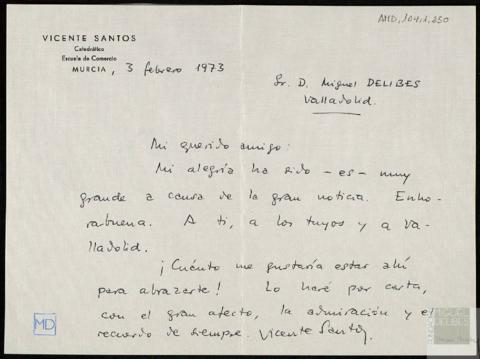 AMD, 104,1,250
VICENTE SANTOS
Catedrático
Escuela de Comercio
MURCIA, 3 febrero 1973
Sr. D. Miguel DELIBES
Valladolid.
Mi querido amigo:
Mi alegría ha sido - es - muy
grande a causa de la gran noticia. Enho-
rabuena. A ti, a los tuyos y a Va-
lladolid.
¡Cuánto me gustaría estar ahí
para abrazarte! Lo haré por carta,
con el gran afecto, la admiración y el
recuerdo de siempre. Vicente Santos
MD